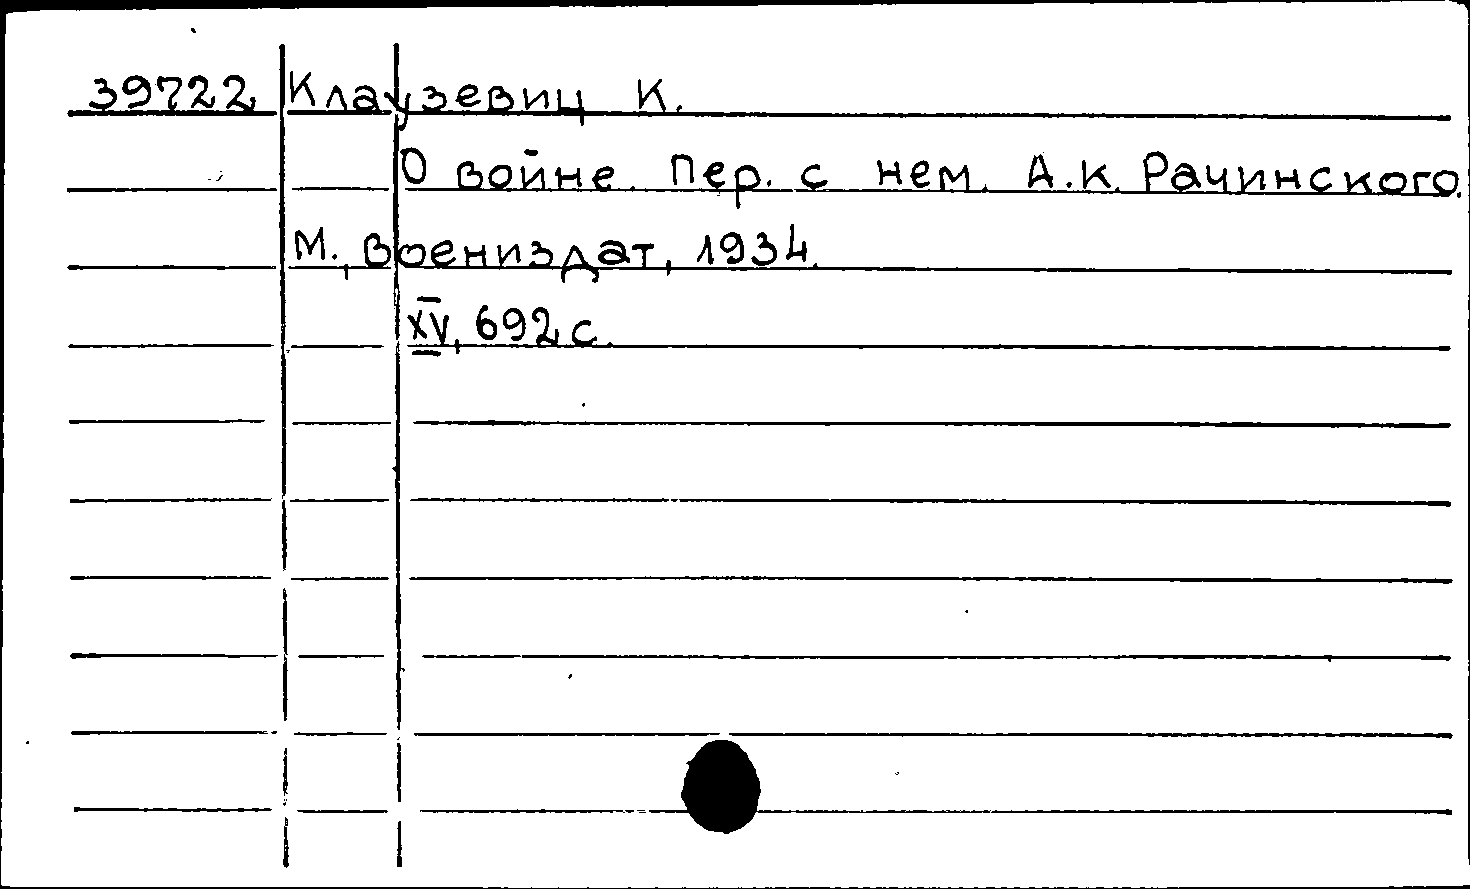 39722 Клаузевиц К.
О войне. Пер. с нем. А.К. Рачинского.
М., Воениздат, 1934.
XV, 692 с.